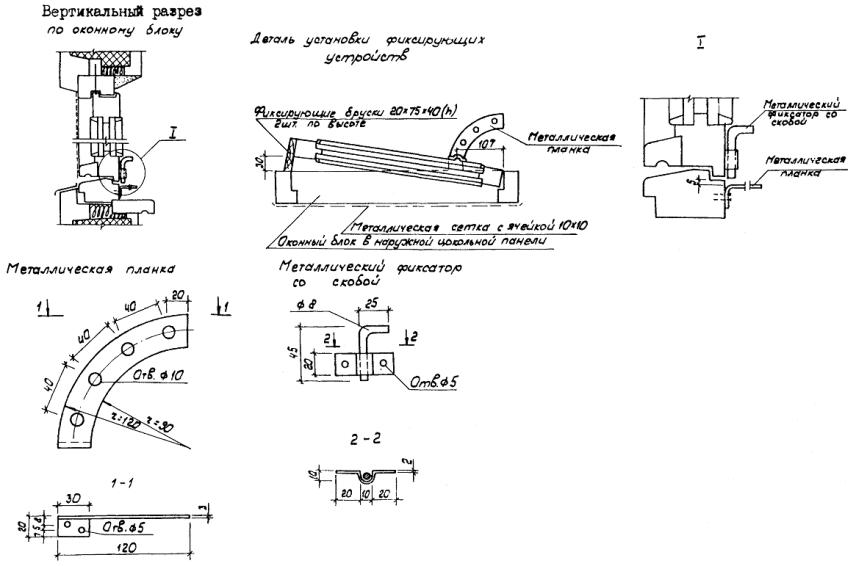 Вертикальный разрез
по оконному блоку
I
Деталь установки фиксирующих
устройств
Фиксирующие бруски 20×75×40(h)
2шт. по высоте
30
107
Металлическая
планка
Металлическая сетка с ячейкой 10×10
Оконный блок в наружной цокольной панели
I
Металлический
фиксатор со
скобой
Металлическая
планка
5
Металлическая планка
1
1
20
40
40
40
Отв. ф10
r=120
r=90
1-1
30
3
20
7 5 8
Отв. ф5
120
Металлический фиксатор
со скобой
ф8
25
2
2
45
20
Отв. ф5
2-2
10
2
20 10 20